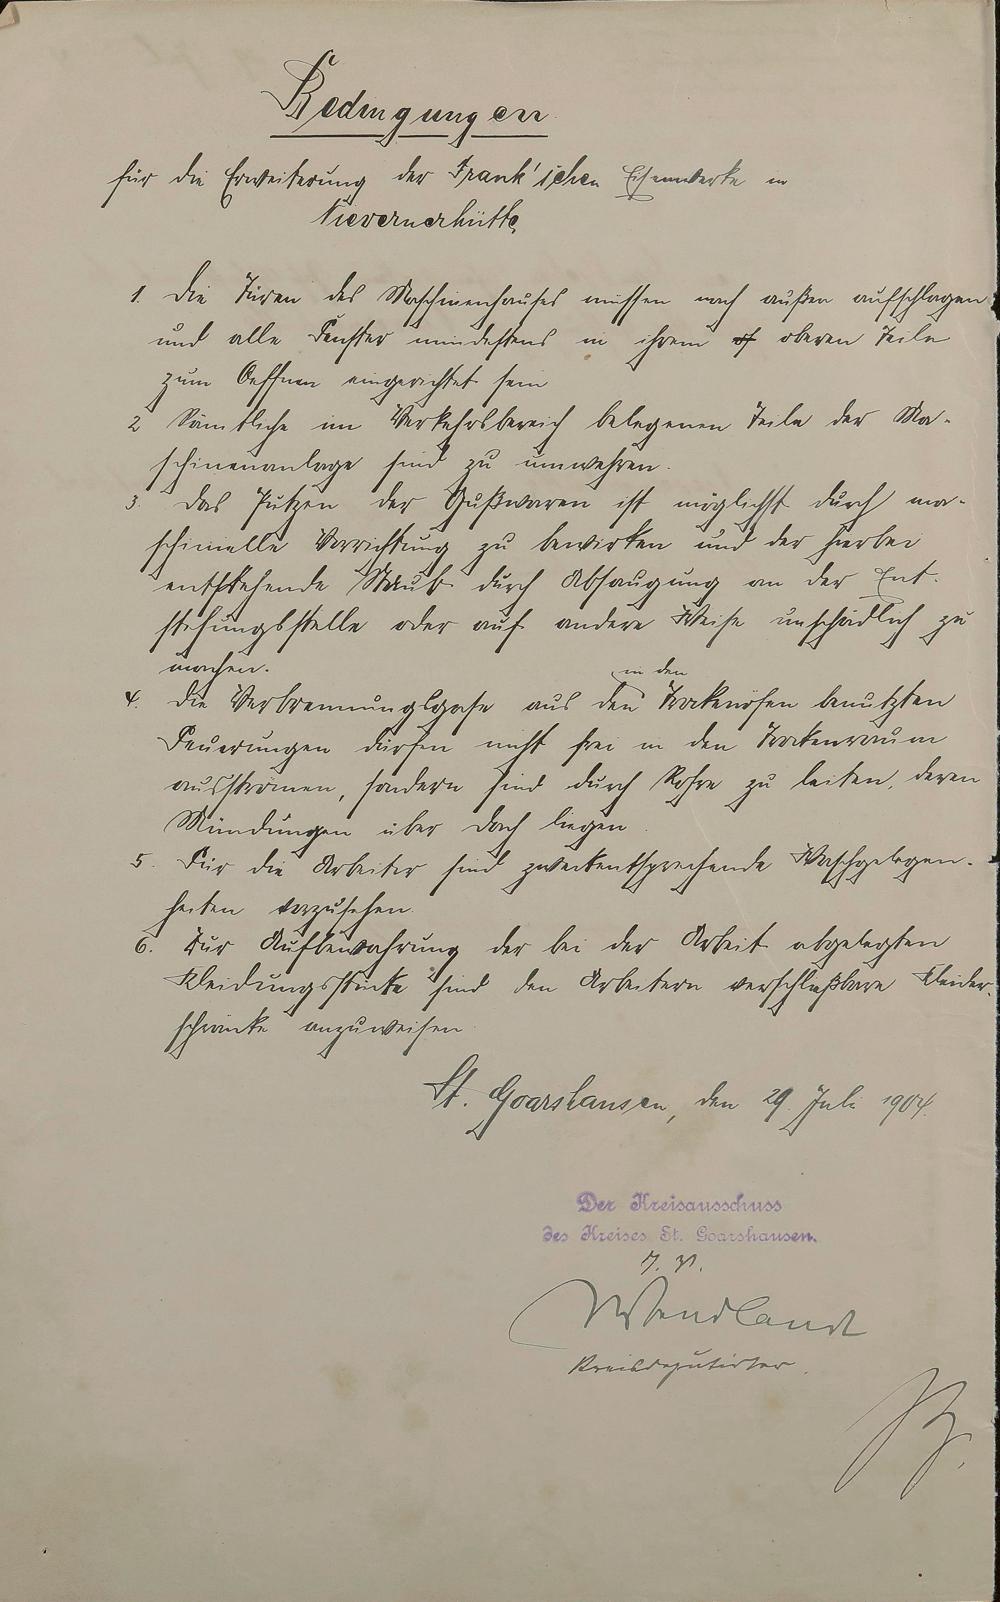 Bedingungen
für die Erweiterung der Frank'schen Eisenwerke in
Nievernerhütte
1. Die Türen des Maschinenhauses müssen nach außen aufschlagen
und alle Fenster mindestens in ihrem oberen Teile
zum Oeffnen eingerichtet sein
2 Sämtliche im Verkehrsbereich belegenen Teile der Ma-
schinenanlage sind zu umwehren.
3. Das Putzen der Gußwaren ist möglichst durch ma-
schinelle Vorrichtung zu bewirken und der hierbei
entstehende Staub durch Absaugung an der Ent-
stehungsstelle oder auf andere Weise unschädlich zu
machen.
4. Die Verbrennungsgase aus den in den Trockenöfen benutzten
Feuerungen dürfen nicht frei in den Trockenraum
ausströmen, sondern sind durch Rohre zu leiten, deren
Mündungen über Dach liegen.
5. Für die Arbeiter sind zweckentsprechende Waschgelegen-
heiten vorzusehen.
6. Zur Aufbewahrung der bei der Arbeit abgelegten
Kleidungsstücke sind den Arbeitern verschließbare Kleider-
schränke anzuweisen
St. Goarshausen, den 29. Juli 1904.
Der Kreisausschuss
des Kreises St. Goarshausen.
J. V.
Wendlandt
Kreisdeputirter.